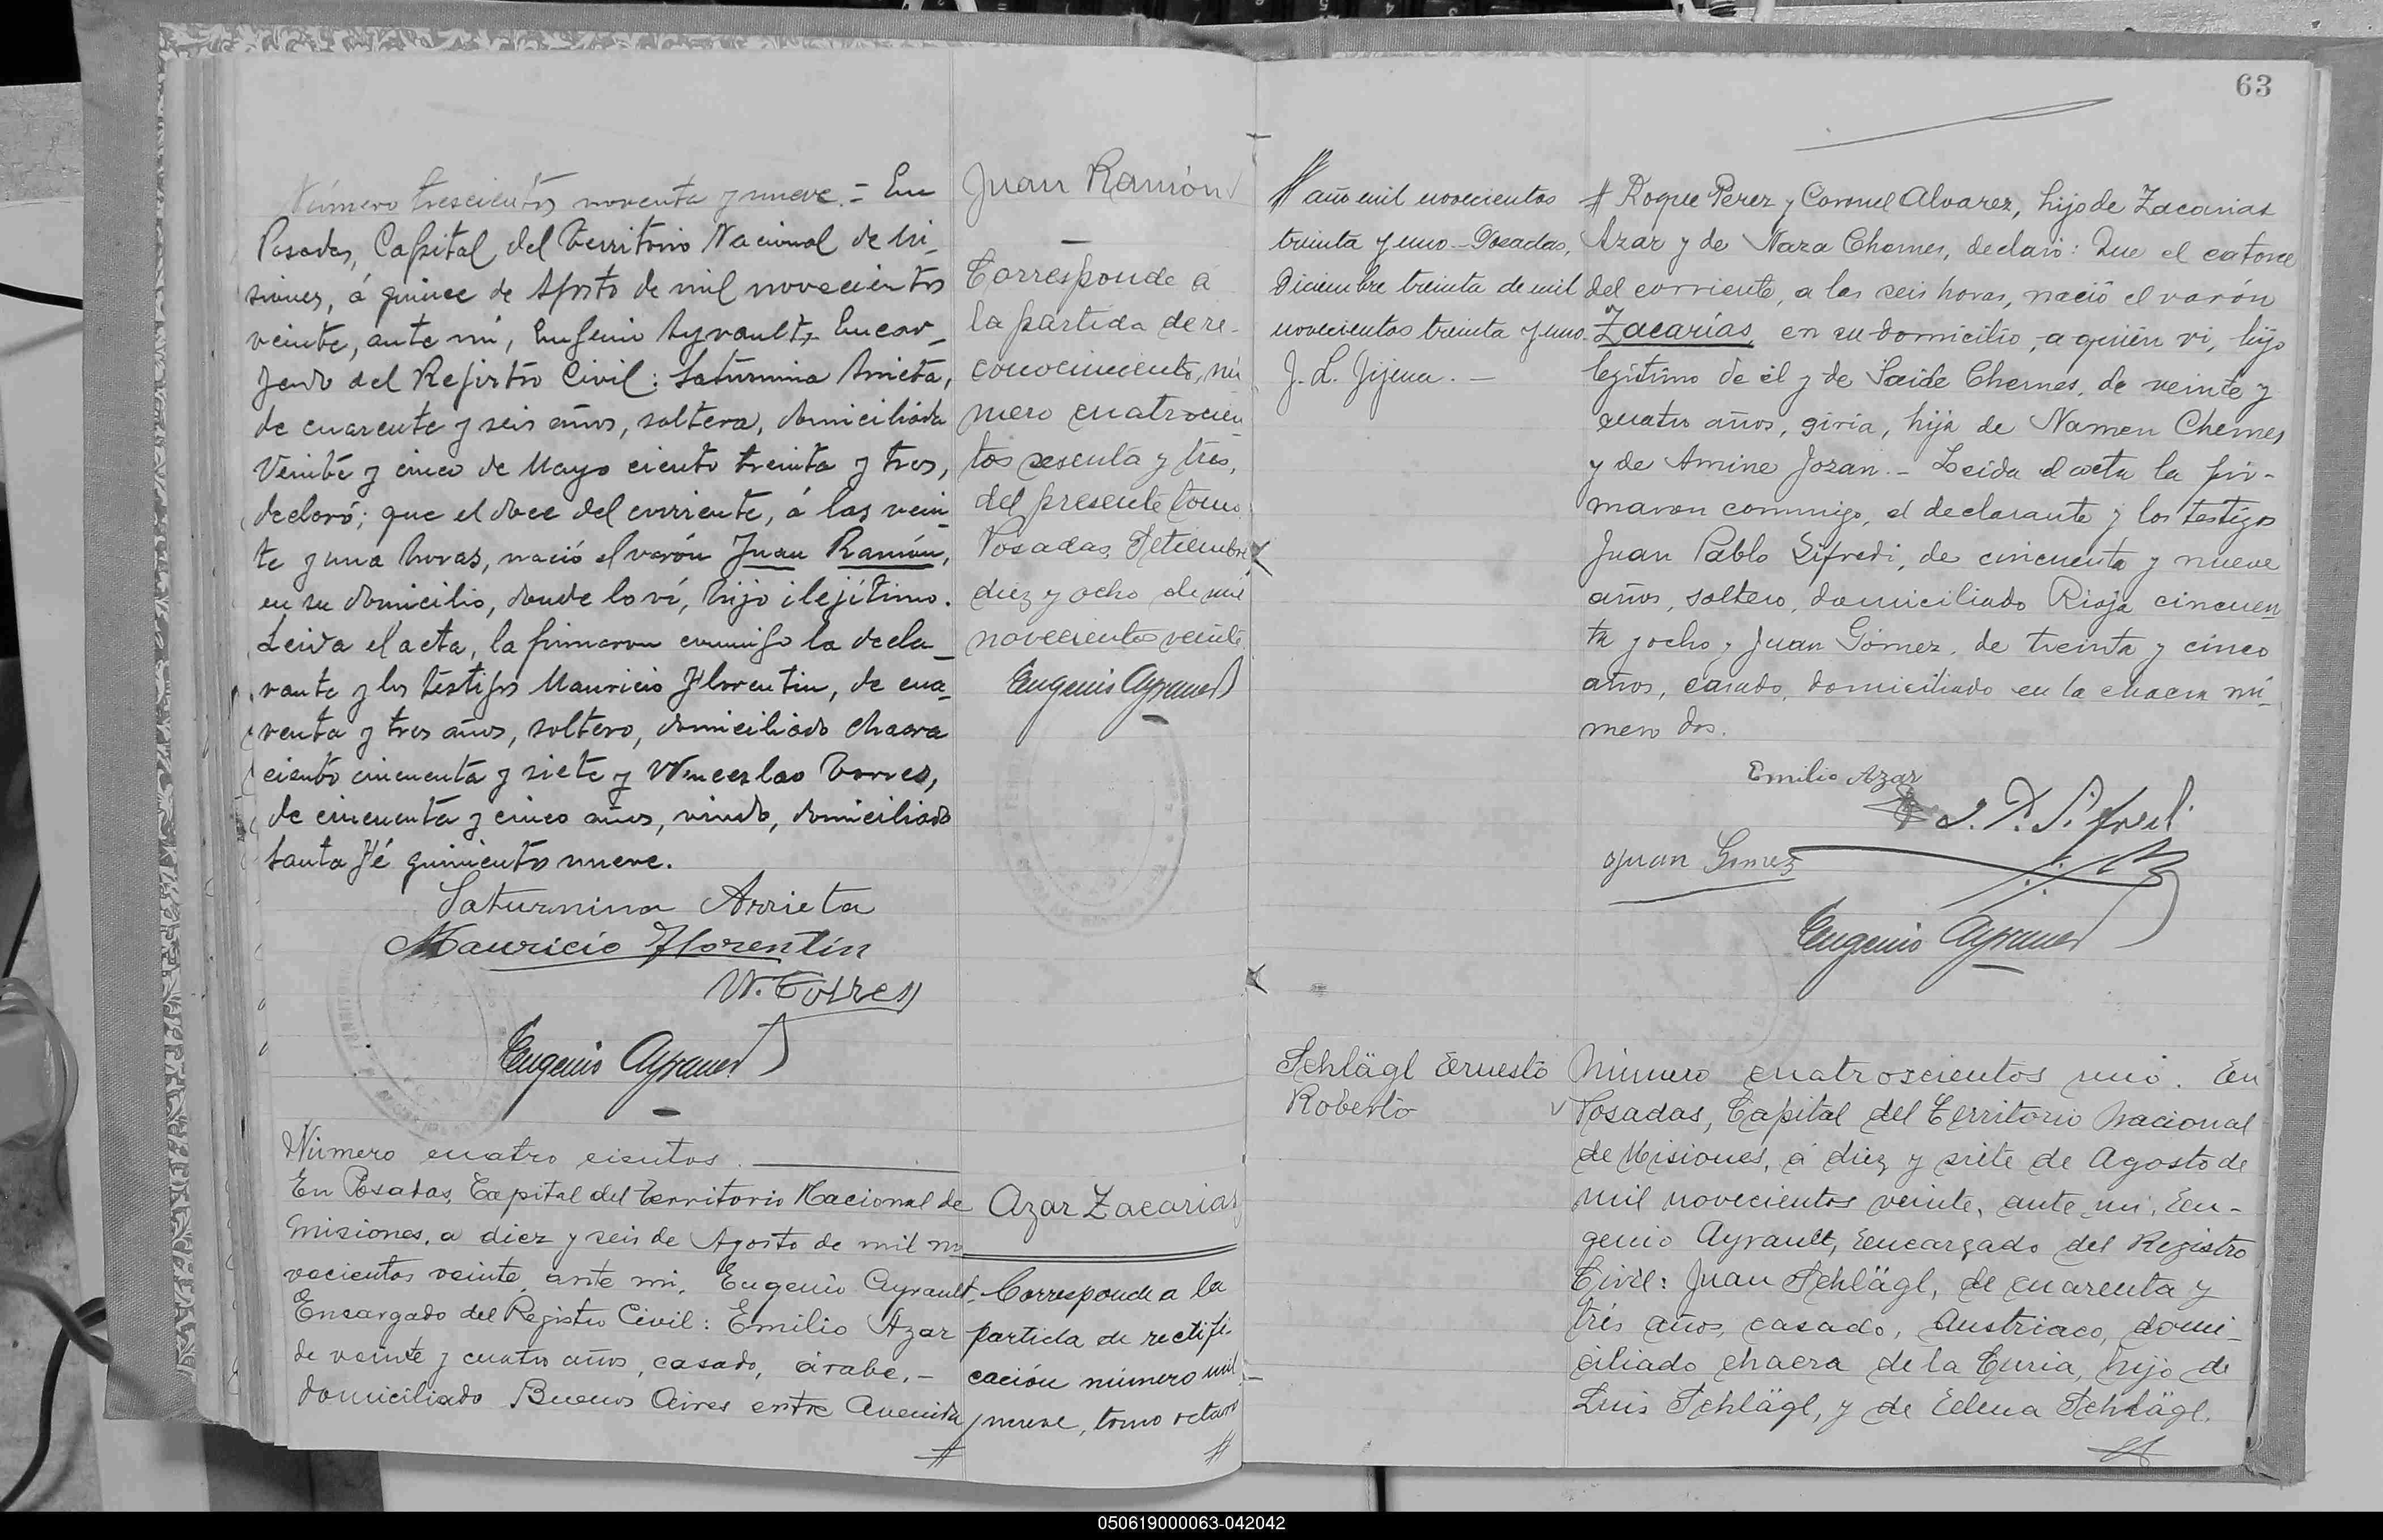 Número trescientos noventa y nueve.= En
Posadas, Capital del Territorio Nacional de Mi_
siones, á quince de Agosto de mil novecientos
veinte, ante mí, Eugenio Ayrault, Encar_
gado del Registro Civil: Saturnina Arrieta,
de cuarenta y seis años, soltera, domiciliada
Veinte y cinco de Mayo ciento treinta y tres,
declaró; que el doce del corriente, á las vein_
te y una horas, nació el varón Juan Ramón,
en su domicilio, donde lo ví, hijo ilejítimo.
Leida el acta, la firmaron conmigo la decla_
rante y los testigos Mauricio Florentin, de cua_
renta y tres años, soltero, domiciliado chacra
ciento cincuenta y siete y Wenceslao Torres,
de cincuenta y cinco años, viudo, domiciliado
Santa Fé quinientos nueve.
Saturnina Arrieta
Mauricio Florentin
W. Torres
Eugenio Ayrault
Juan Ramón
Corresponde á
la partida de re-
conocimiento, nú
mero cuatrocien_
tos sesenta y tres,
del presente tomo
Posadas, Setiembre
diez y ocho de mil
novecientos veinte
Eugenio Ayrault
Número cuatro cientos.
En Posadas, Capital del Territorio Nacional de
Misiones, a diez y seis de Agosto de mil no
vecientos veinte, ante mi, Eugenio Ayrault,
Encargado del Registro Civil: Emilio Azar
de veinte y cuatro años, casado, árabe,-
domiciliado Buenos Aires entre Avenida
#
Azar Zacarias
Corresponde a la
partida de rectifi-
cación número mil
y nueve, tomo octavo
#
63
# año mil novecientos
treinta y uno - Posadas,
Diciembre treinta de mil
novecientos treinta y uno.
J. L. Jijena. -
# Roque Perez y Coronel Alvarez, hijo de Zacarias
Azar y de Naza Chemes, declaró: Que el catorce
del corriente, a las seis horas, nació el varón
Zacarías, en su domicilio, a quién vi, hijo
legítimo de él y de Saide Chemes, de veinte y
cuatro años, siria, hija de Namen Chemes
y de Amine Jozan. - Leida el acta la fir-
maron conmigo, el declarante y los testigos
Juan Pablo Sifredi, de cincuenta y nueve
años, soltero, domiciliado Rioja cincuen_
ta y ocho y Juan Gómez, de treinta y cinco
años, casado, domiciliado en la chacra nú_
mero dos.
Emilio Azar
J. P. Sifredi
Juan Gomez
Eugenio Ayrault
Schlägl Ernesto
Roberto
Número cuatroscientos uno. En
Posadas, Capital del Territorio Nacional
de Misiones, á diez y siete de Agosto de
mil novecientos veinte, ante mi, Eu-
genio Ayrault, Encargado del Registro
Civil: Juan Schlägl, de cuarenta y
trés años, casado, Austriaco, domi-
ciliado chacra de la Curia, hijo de
Luis Schlägl, y de Elena Schlägl.
#
050619000063-042042